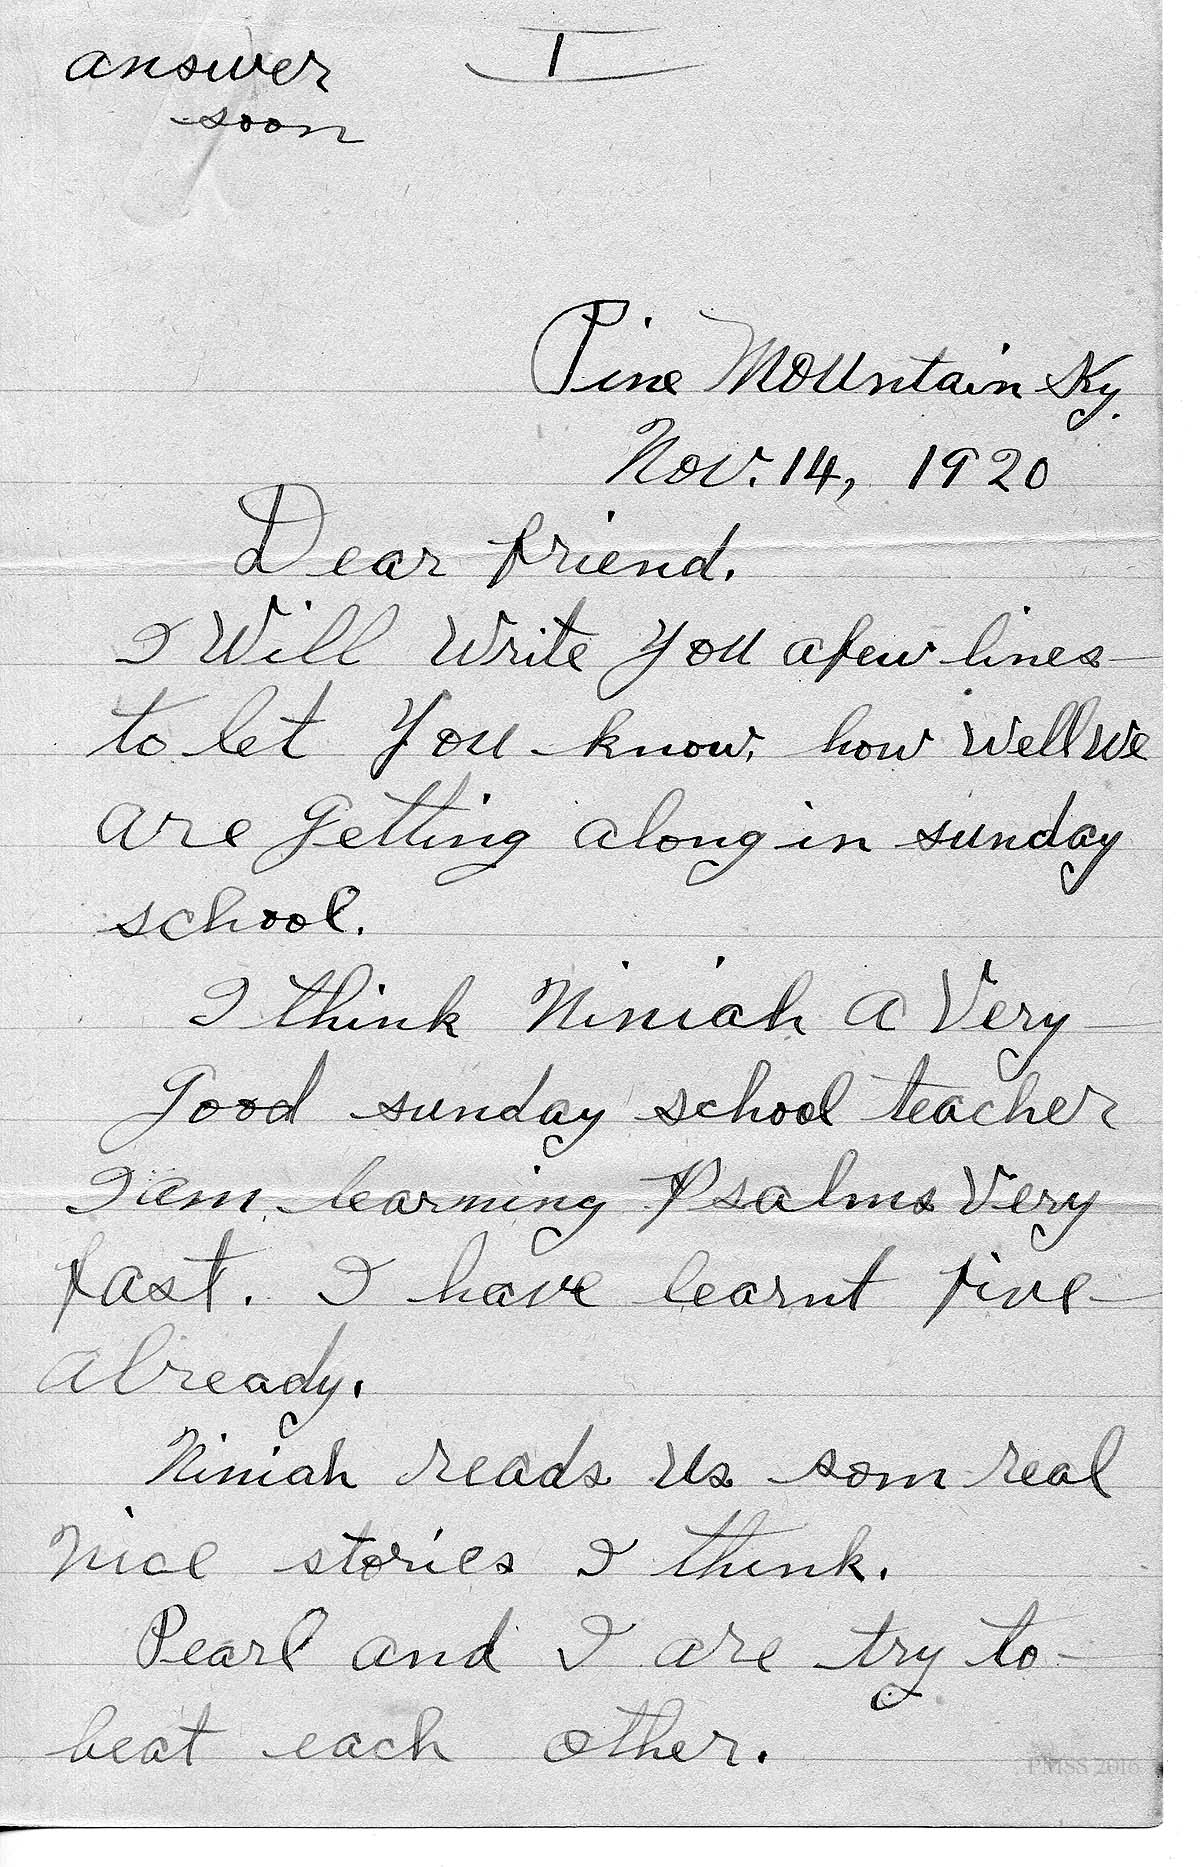 answer
soon
1
Pine Mountain Ky.
Nov. 14, 1920
Dear friend.
I Will Write You a few lines
to let You know, how well we
are Getting along in sunday
school.
I think Niniah a Very
Good sunday school teacher
I am learning Psalms Very
fast. I have learnt five
already.
Niniah reads us som real
Nice stories I think.
Pearl and I are try to
beat each other.
PMSS 2016